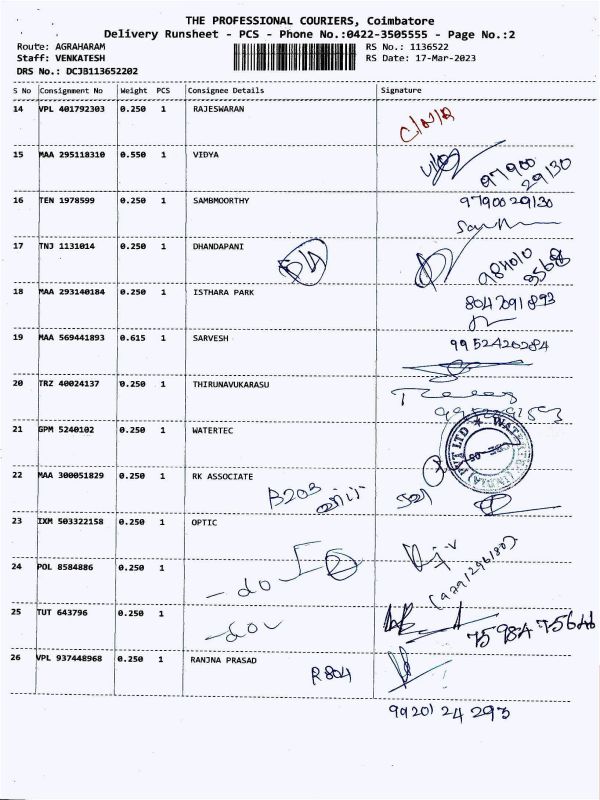 THE PROFESSIONAL COURIERS, Coimbatore
Delivery Runsheet - PCS - Phone No.:0422-3505555 - Page No.:2
Route: AGRAHARAM RS No.: 1136522
Staff: VENKATESH RS Date: 17-Mar-2023
DRS No.: DCJB113652202
S No Consignment No Weight PCS Consignee Details Signature
14 VPL 401792303 0.250 1 RAJESWARAN
C/N/R
15 MAA 295118310 0.550 1 VIDYA
97900
29130
16 TEN 1978599 0.250 1 SAMBMOORTHY 9790029130
17 TNJ 1131014 0.250 1 DHANDAPANI
984010
18 MAA 293140184 0.250 1 ISTHARA PARK
8047091893
19 MAA 569441893 0.615 1 SARVESH 9952420284
20 TRZ 40024137 0.250 1 THIRUNAVUKARASU
21 GPM 5240102 0.250 1 WATERTEC
22 MAA 300051829 0.250 1 RK ASSOCIATE
B203
23 IXM 503322158 0.250 1 OPTIC
24 POL 8584886 0.250 1
- do
25 TUT 643796 0.250 1
- do
75984 75646
26 VPL 937448968 0.250 1 RANJNA PRASAD
R804
99201 24 293